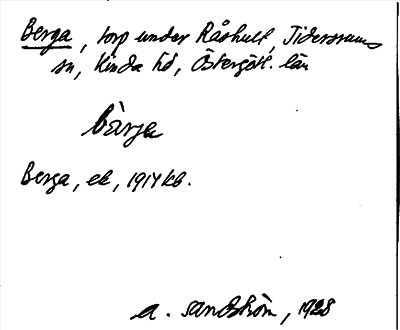 Berga, torp under Råshult, Tidersrums
sn, Kinda hd, Östergötl. län
bàrja
Berga, ek, 1917 kb.
A. Sandström, 1928